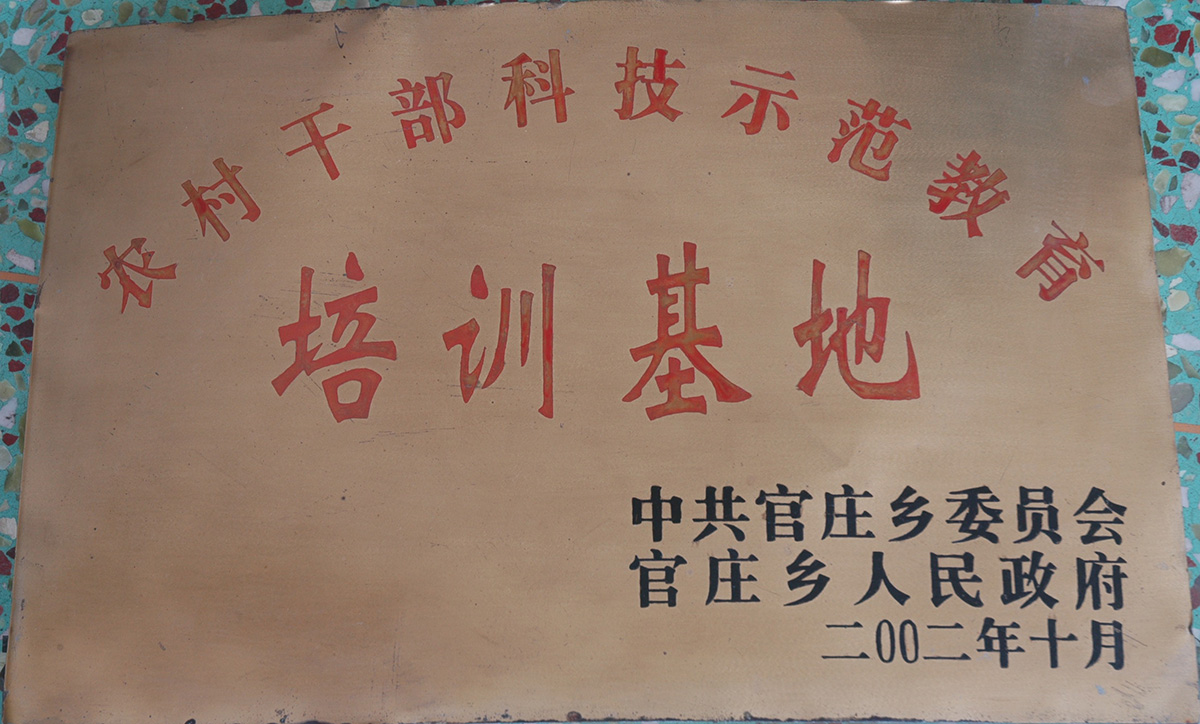 农村干部科技示范教育
培训基地
中共官庄乡委员会
官庄乡人民政府
二00二年十月